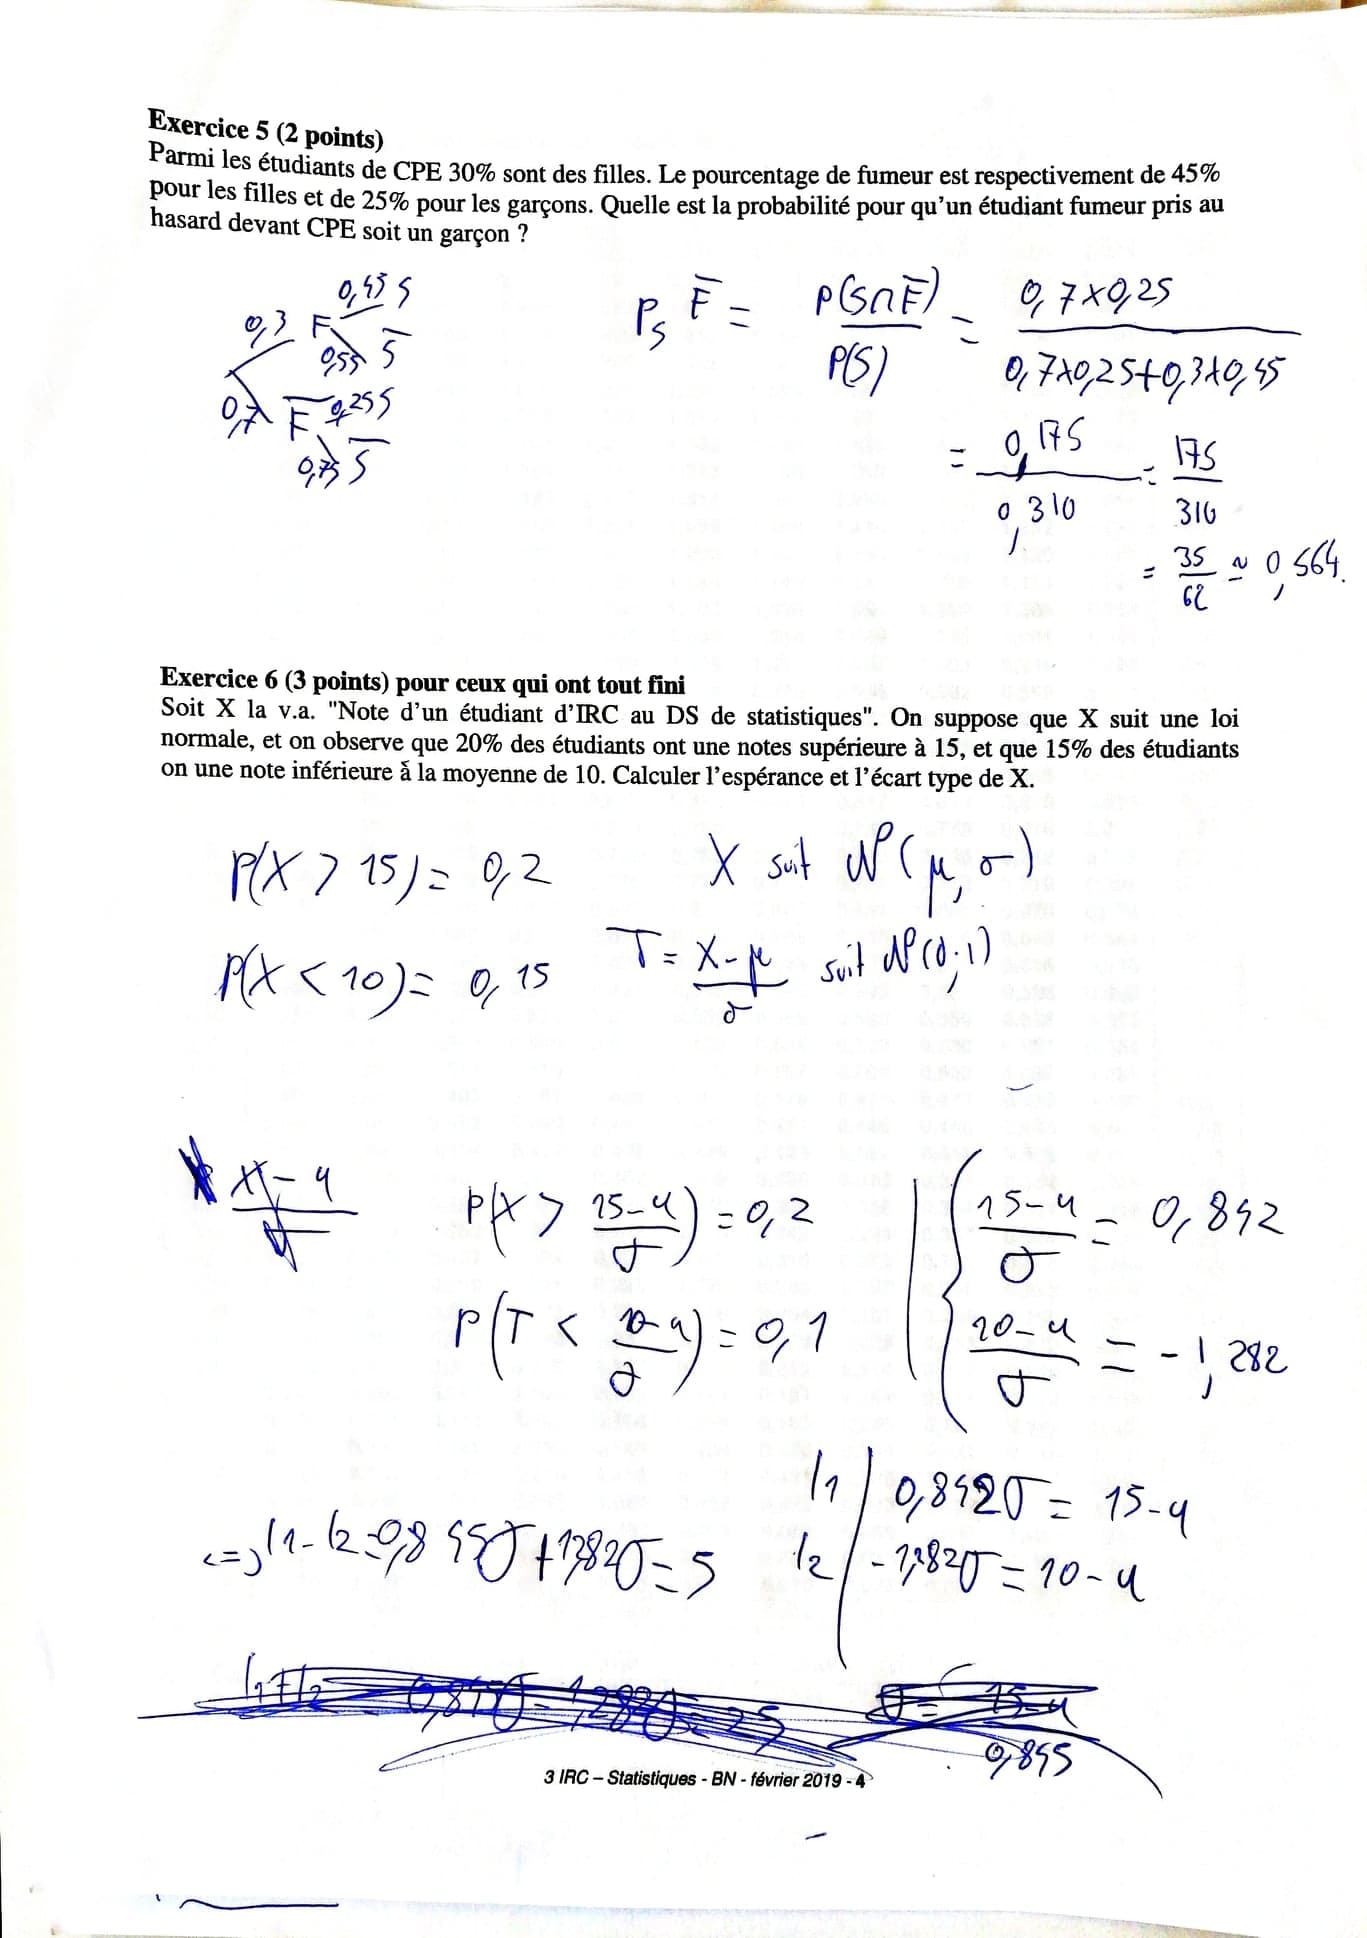 Exercice 5 (2 points)
Parmi les étudiants de CPE 30% sont des filles. Le pourcentage de fumeur est respectivement de 45%
pour les filles et de 25% pour les garçons. Quelle est la probabilité pour qu'un étudiant fumeur pris au
hasard devant CPE soit un garçon ?
0,45 S
0,3 F
0,55 S̅
0,7 F̅ 0,25 S
0,75 S̅
P_S F̅ = P(S∩F̅) / P(S) = 0,7×0,25 / 0,7×0,25+0,3×0,45
= 0,175 / 0,310 = 175 / 310
= 35/62 ≃ 0,564.
Exercice 6 (3 points) pour ceux qui ont tout fini
Soit X la v.a. "Note d'un étudiant d'IRC au DS de statistiques". On suppose que X suit une loi
normale, et on observe que 20% des étudiants ont une notes supérieure à 15, et que 15% des étudiants
on une note inférieure à la moyenne de 10. Calculer l'espérance et l'écart type de X.
P(X > 15) = 0,2 X suit N(μ, σ)
P(X < 10) = 0,15 T = X-μ / σ suit N(0,1)
X-μ / σ
P(X > 15-μ / σ) = 0,2
15-μ / σ = 0,842
P(T < 10-μ / σ) = 0,1
10-μ / σ = -1,282
l1 0,842σ = 15-μ
l2 -1,282σ = 10-μ
<=> l1-l2 = 0,845σ + 1,282σ = 5
0,845
3 IRC – Statistiques - BN - février 2019 - 4